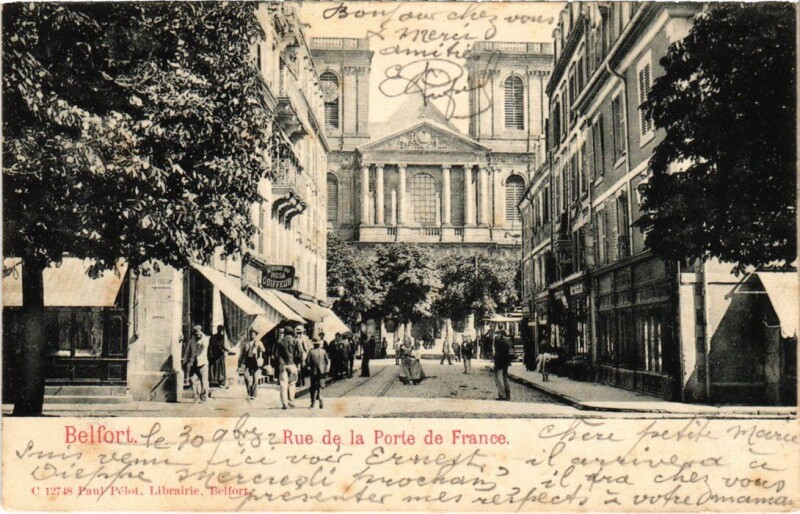 Bonjour chez vous
Merci
amitié
ROSA
COIFFEUR
Belfort. le 30 9bre
Rue de la Porte de France.
Chère petite Marie
Suis venu ici voir Ernest, il arrivera à
Dieppe mercredi prochain il ira chez vous
présenter mes respects à votre maman
C 12748 Paul Pélot, Librairie, Belfort.